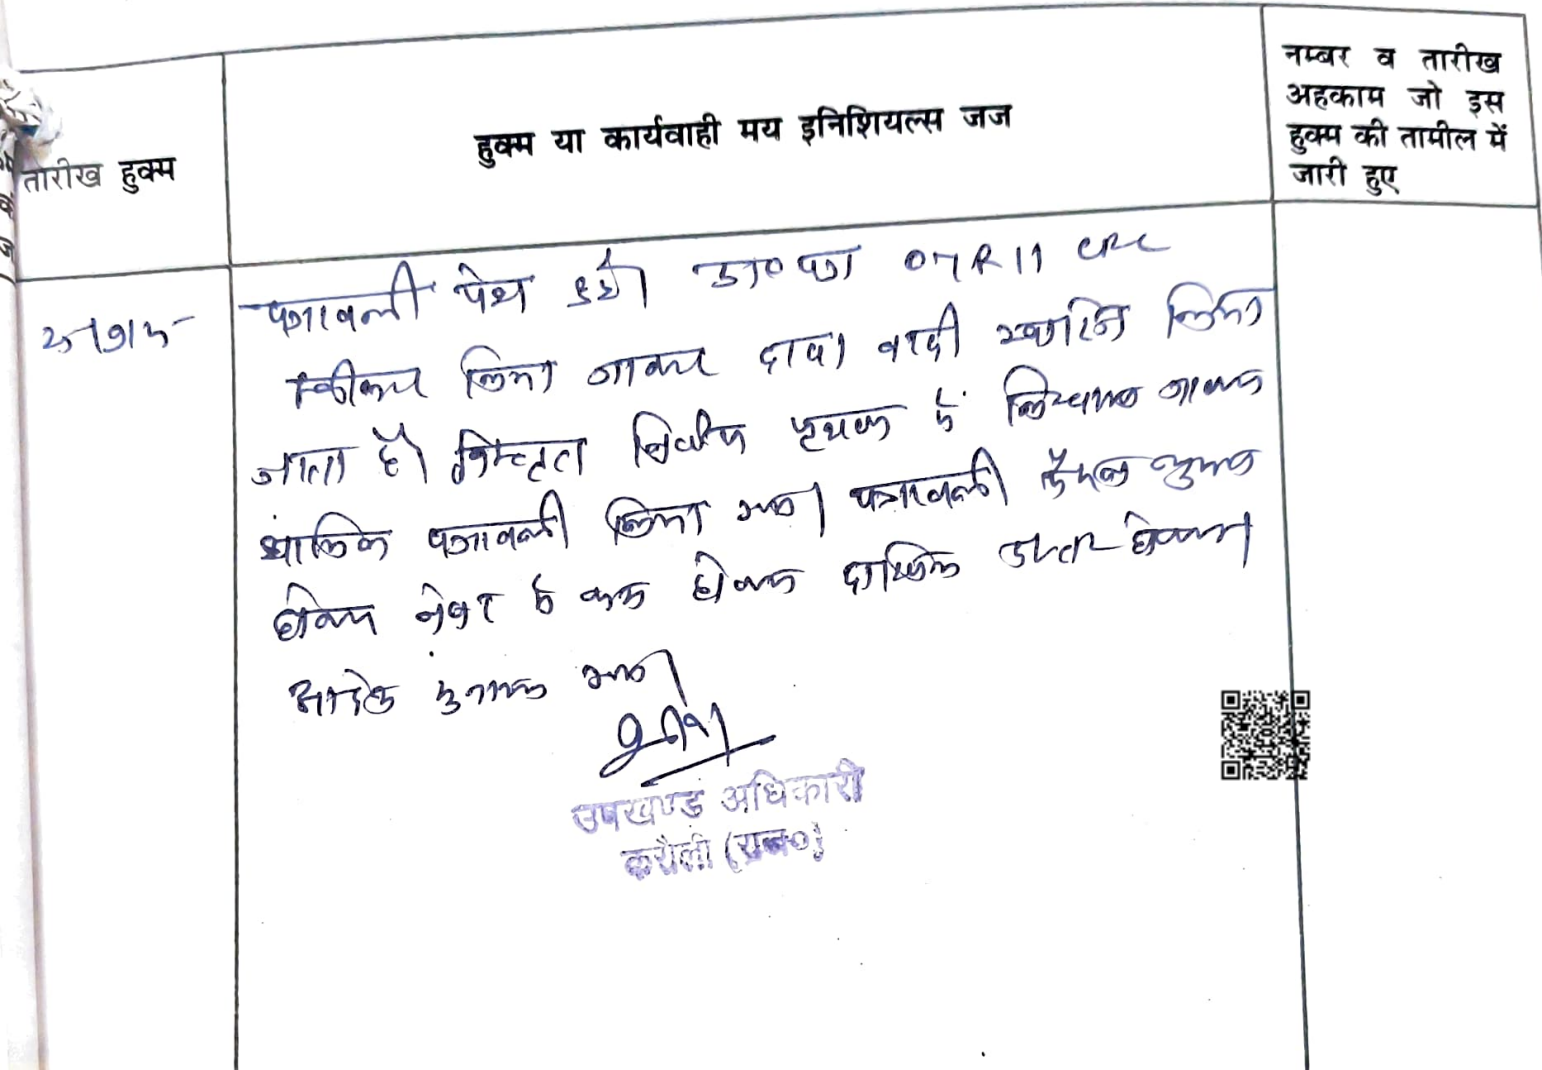 तारीख हुक्म
हुक्म या कार्यवाही मय इनिशियल्स जज
नम्बर व तारीख
अहकाम जो इस
हुक्म की तामील में
जारी हुए
पत्रावली पेश हुई। प्रा० पत्र 07R11 CPC
स्वीकार किया जाकर दावा वादी खारिज किया
जाता है। विस्तृत निर्णय पृथक से लिखाया जाकर
शामिल पत्रावली किया गया। पत्रावली फैसल शुमार
होकर नंबर से कम होकर दाखिल दफ्तर होवे।
आदेश सुनाया गया।
उपखण्ड अधिकारी
करौली (राज०)